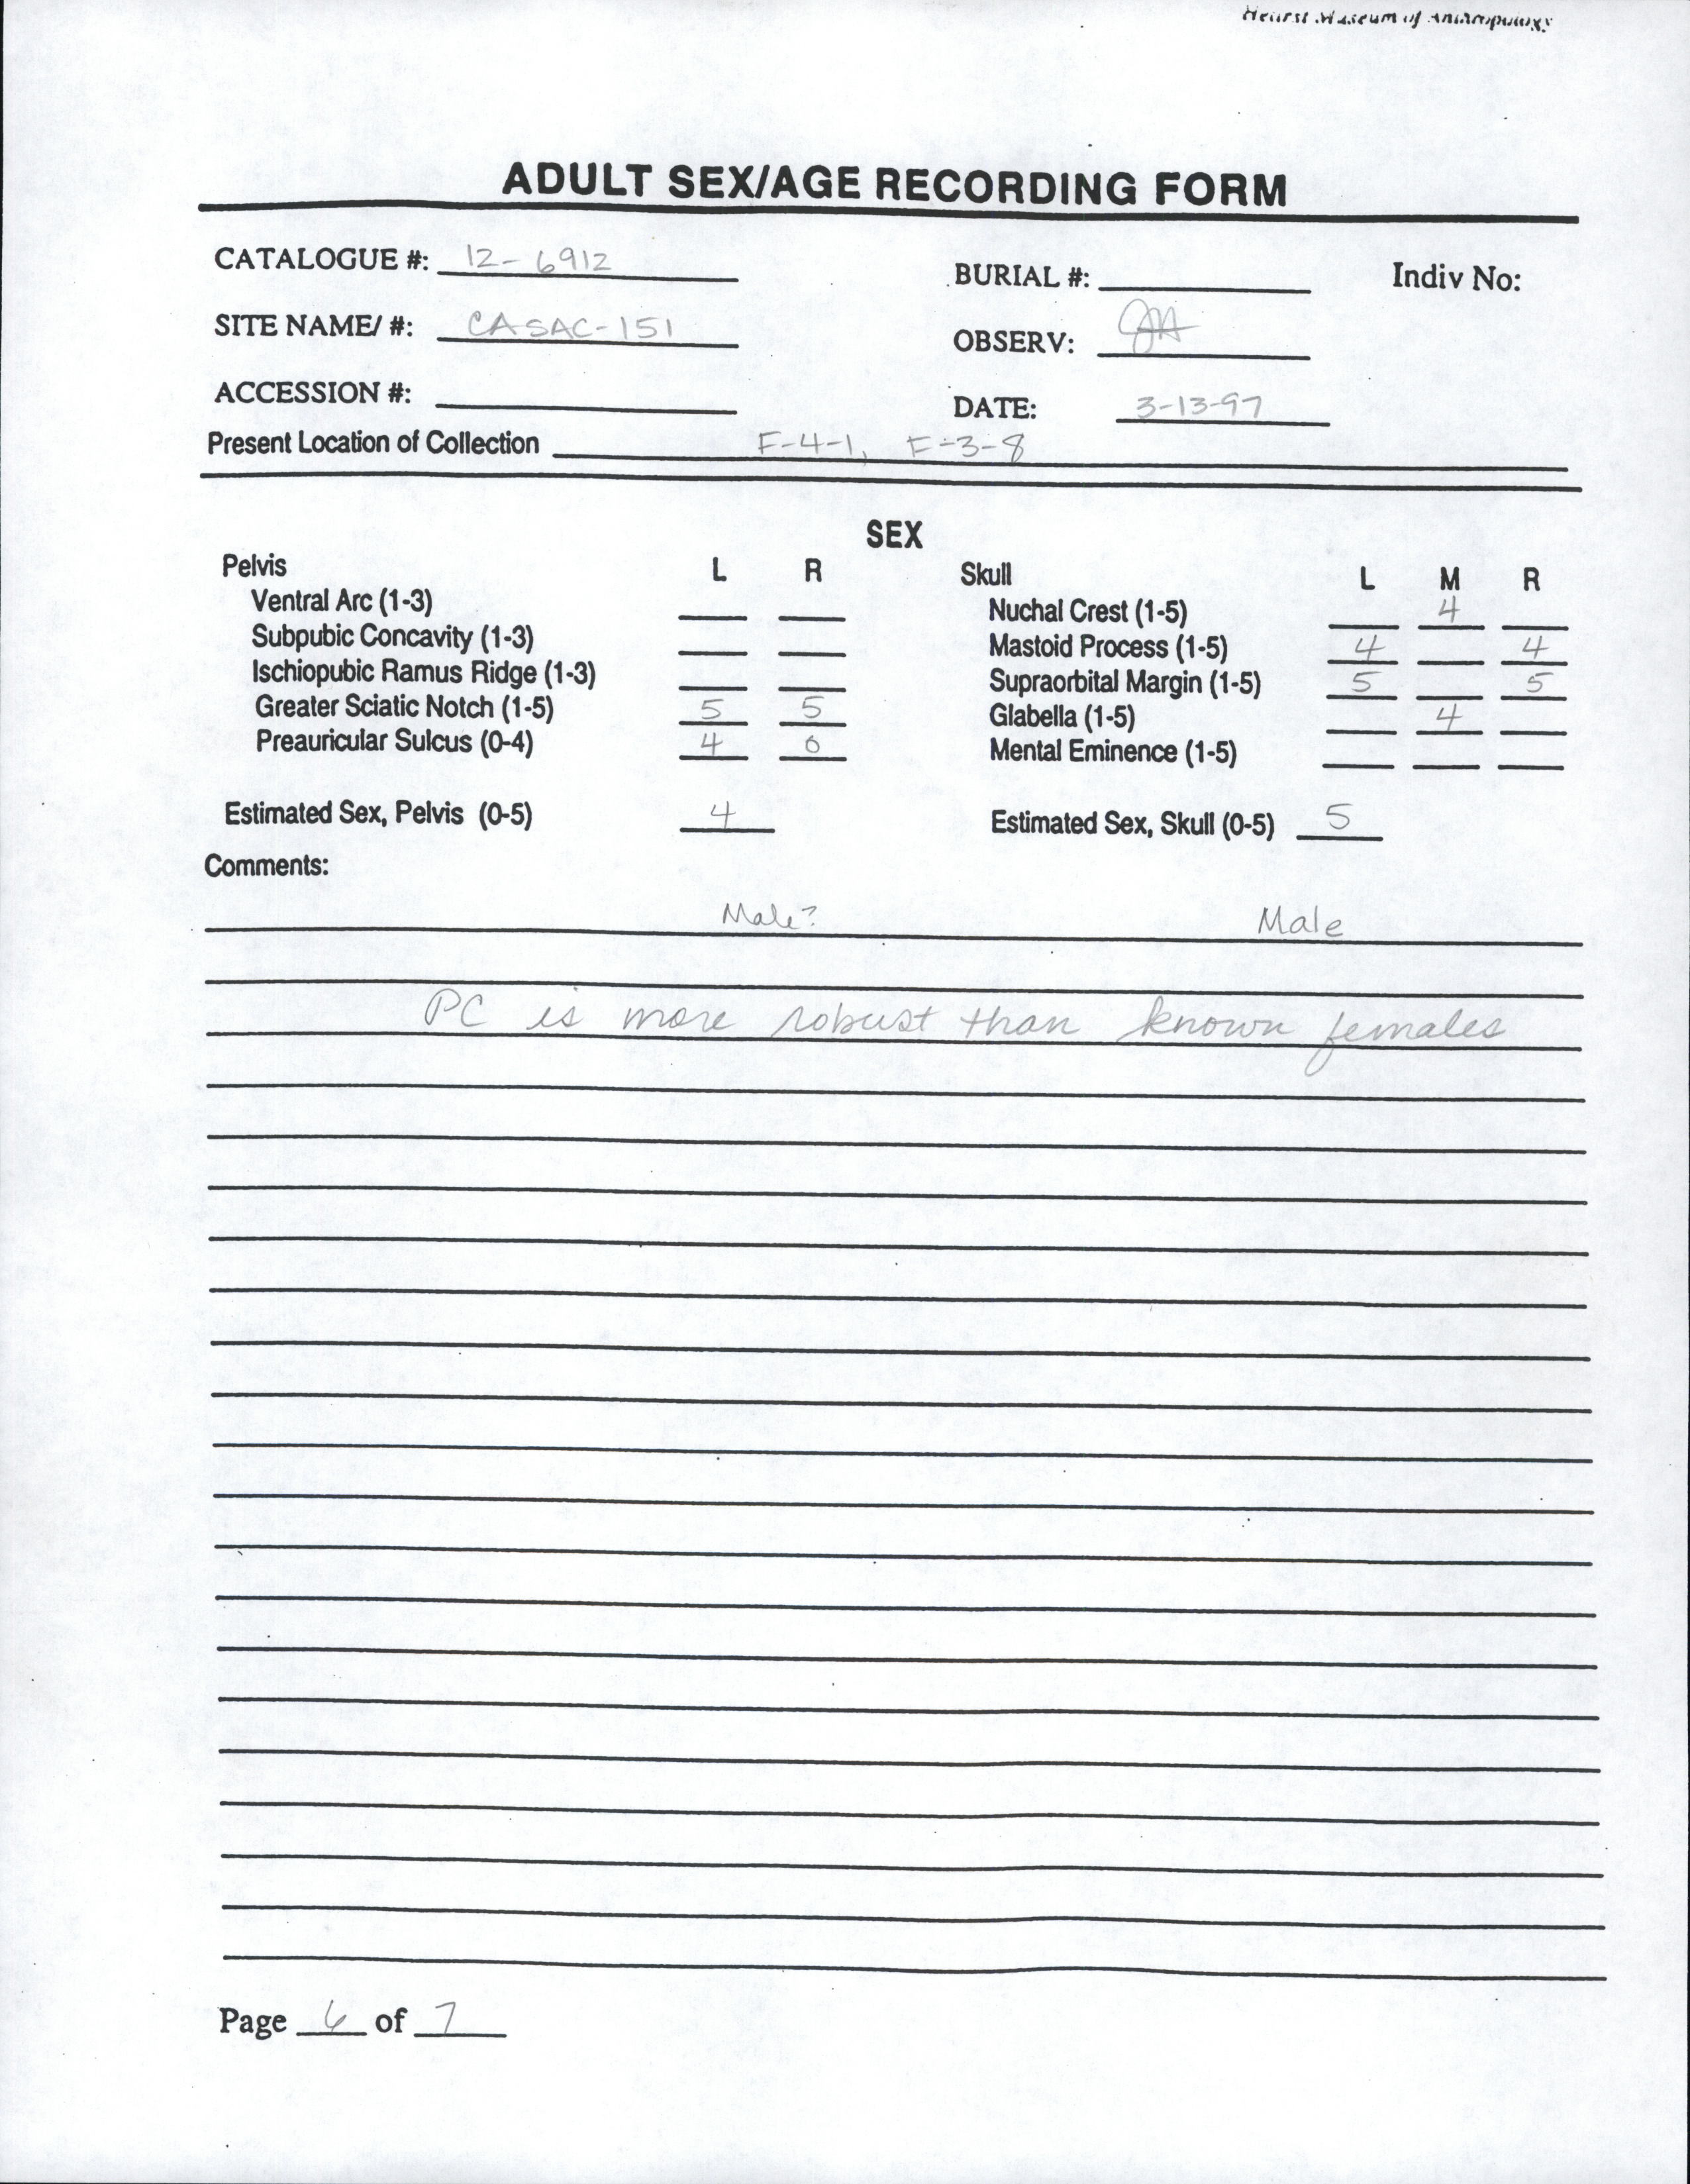 Hearst Museum of Anthropology
ADULT SEX/AGE RECORDING FORM
CATALOGUE #: 12-6912
BURIAL #:
Indiv No:
SITE NAME/ #: CA SAC-151
OBSERV:
ACCESSION #:
DATE: 3-13-97
Present Location of Collection F-4-1, F-3-8
SEX
Pelvis L R
Ventral Arc (1-3)
Subpubic Concavity (1-3)
Ischiopubic Ramus Ridge (1-3)
Greater Sciatic Notch (1-5) 5 5
Preauricular Sulcus (0-4) 4 0
Estimated Sex, Pelvis (0-5) 4
Skull L M R
Nuchal Crest (1-5) 4
Mastoid Process (1-5) 4 4
Supraorbital Margin (1-5) 5 5
Glabella (1-5) 4
Mental Eminence (1-5)
Estimated Sex, Skull (0-5) 5
Comments:
Male? Male
PC is more robust than known females
Page 6 of 7